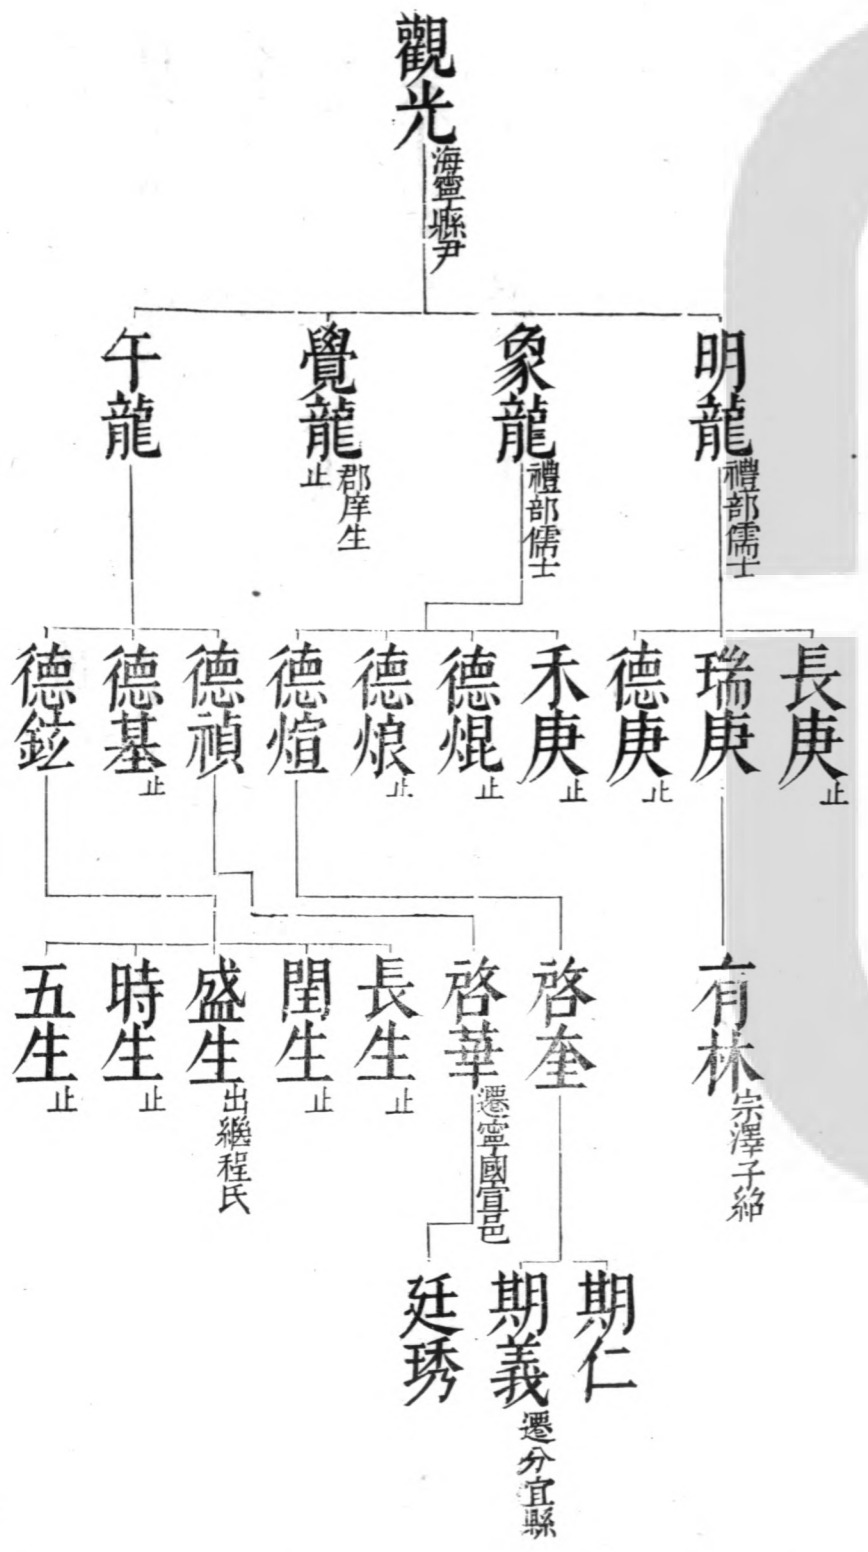 觀光
海寧縣尹
明龍
禮部儒士
象龍
禮部儒士
覺龍
郡庠生
止
午龍
長庚
止
瑞庚
德庚
止
禾庚
止
德焜
止
德烺
止
德煊
德禎
德基
止
德鉉
有林
宗澤子紹
啓奎
啓華
遷寧國宣邑
長生
止
閏生
止
盛生
出繼程氏
時生
止
五生
止
期仁
期義
遷分宜縣
廷琇